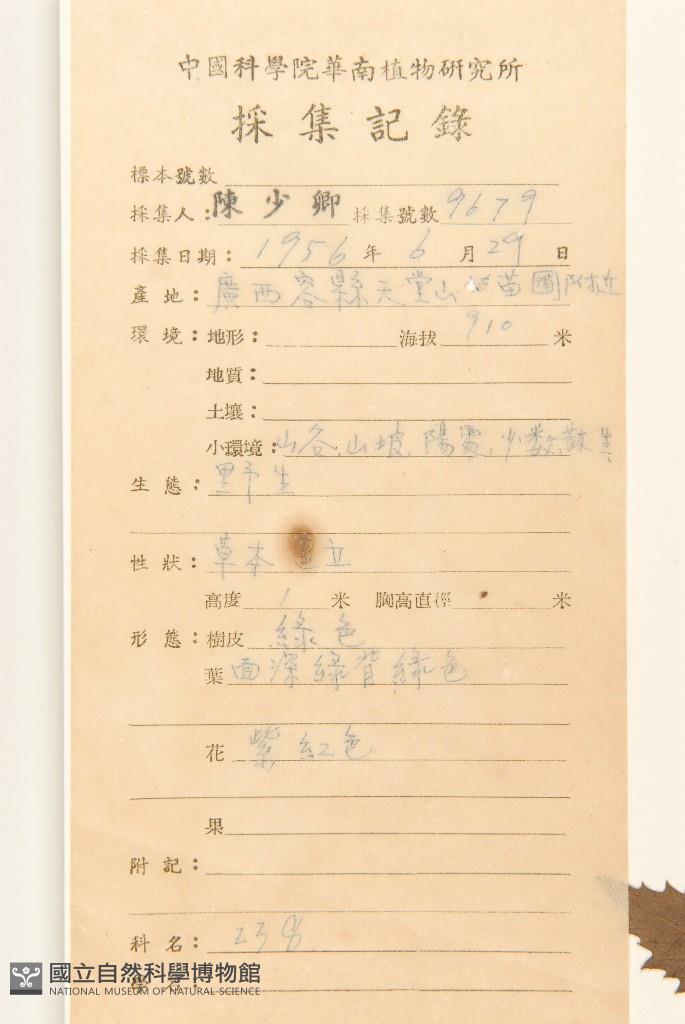 中國科學院華南植物研究所
採集記錄
標本號數
採集人：陳少卿 採集號數 9679
採集日期：1956年6月29日
產地：廣西容縣天堂山 苗圃附近
環境：地形： 海拔 910 米
地質：
土壤：
小環境：山谷.山坡.陽處.少数散生
生態：野生
性狀：草本 立
高度 1 米 胸高直徑 米
形態：樹皮 綠色
葉 面深綠背綠色
花 紫紅色
果
附記：
科名：238
學名：
國立自然科學博物館
NATIONAL MUSEUM OF NATURAL SCIENCE